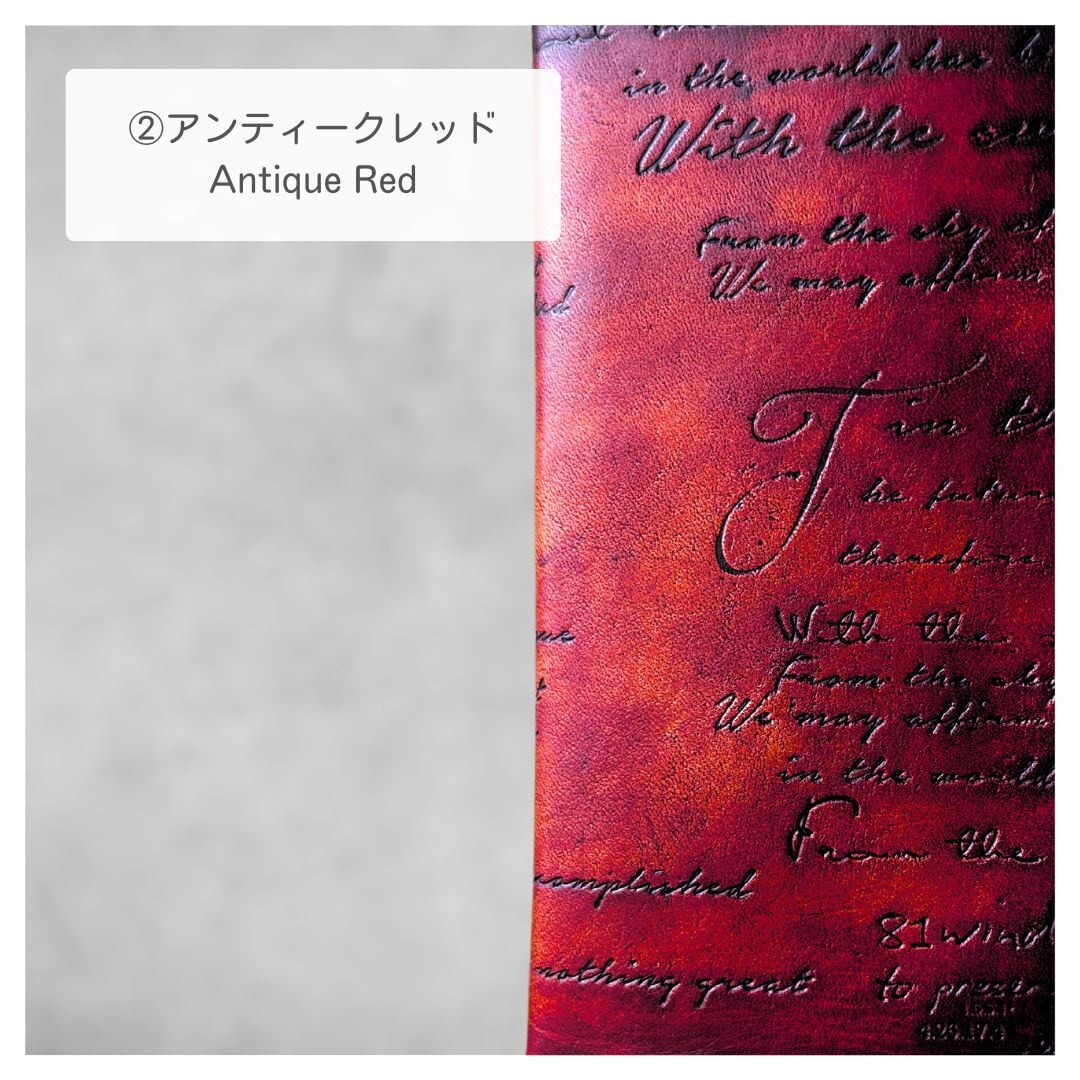 ②アンティークレッド
Antique Red
in the world has
With the
From the sky of
We may affirm
T in th
he future
therefore
With the
From the sky
We may affirm
in the world
From the
complished
81wind
nothing great
to preser
428.17.4